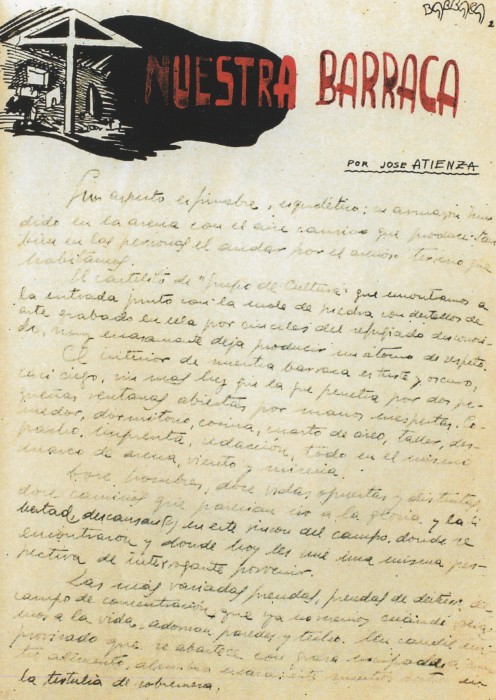 BARRACA
2
NUESTRA BARRACA
POR JOSE ATIENZA
Su aspecto es fúnebre, esquelético; su armazón hun-
dido en la arena con el aire cansino que produce tam-
bién en las personas el andar por el terreno que
habitamos.
El cartelito de "Grupo de Cultura" que encontramos a
la entrada junto con la mole de piedra con detalles de
arte grabados en ella por cinceles del refugiado desconoci-
do, muy escasamente deja producir un átomo de respeto.
El interior de nuestra barraca es triste y oscuro,
casi ciego, sin mas luz que la que penetra por dos pe-
queñas ventanas abiertas por manos inexpertas. Co-
medor, dormitorio, cocina, cuarto de aseo, taller, des-
pacho, imprenta, redacción, todo en el mismo
marco de arena, viento y miseria.
Doce hombres, doce vidas opuestas y distintas,
doce caminos que parecían ir a la gloria y la li-
bertad, descansan en este rincon del campo, donde se
encontraron y donde hoy les une una misma pers-
pectiva de interrogante porvenir.
Las más variadas prendas, prendas de
campo de concentración, que ya no menos cuando
mos a la vida, adornan paredes y techo. Un candil im-
provisado que se abastece con grasa
alimento, alumbra en
la tertulia de sobremesa.